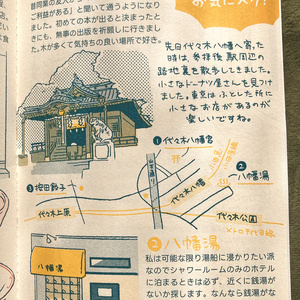 同業の友人か
ご利益がある」と聞いて通うようになり
ました。初めての本が出ると決まったと
きにも、無事の出版を祈願しに行きまし
た。木が多くて気持ちの良い場所で好き。
お気に入り!
先日代々木八幡へ寄った
時は、参拝後、駅周辺の
路地裏を散歩してきました。
小さなドーナツ屋さんを見つけ
ました。東京は、ふとした所に
小さなお店があるのが
楽しいですね。
①代々木八幡宮
山手通り
代々木八幡
②
八幡湯
③按田餃子
代々木上原
代々木公園
メトロ千代田線
八幡湯
②八幡湯
私は可能な限り湯船に浸かりたい派
なのでシャワールームのみのホテル
に泊まるときは必ず、近くに銭湯が
ないか探します。なんなら銭湯がな